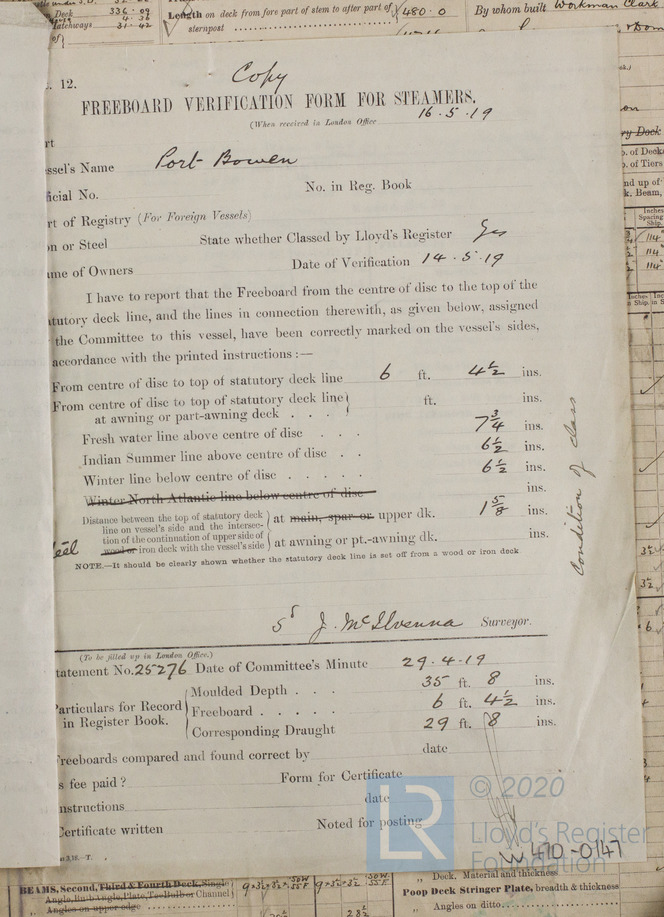 336 . 09
4 . 36
Hatchways 31 . 42
Length on deck from fore part of stem to after part of 480 . 0
sternpost
By whom built Workman Clark
12.
Copy
FREEBOARD VERIFICATION FORM FOR STEAMERS.
(When received in London Office 16.5.19
rt
ssel's Name Port Bowen
icial No. No. in Reg. Book
rt of Registry (For Foreign Vessels)
n or Steel State whether Classed by Lloyd's Register Yes
me of Owners Date of Verification 14.5.19
I have to report that the Freeboard from the centre of disc to the top of the
tutory deck line, and the lines in connection therewith, as given below, assigned
the Committee to this vessel, have been correctly marked on the vessel's sides,
accordance with the printed instructions :—
From centre of disc to top of statutory deck line 6 ft. 4½ ins.
From centre of disc to top of statutory deck line ft. ins.
at awning or part-awning deck . . .
Fresh water line above centre of disc . . . 7¾ ins.
Indian Summer line above centre of disc . . 6½ ins.
Winter line below centre of disc . . . . . 6½ ins.
Winter North Atlantic line below centre of disc ins.
Distance between the top of statutory deck
line on vessel's side and the intersec-
tion of the continuation of upper side of
wood or iron deck with the vessel's side
at main, spar or upper dk. 1⅝ ins.
at awning or pt.-awning dk. ins.
NOTE.—It should be clearly shown whether the statutory deck line is set off from a wood or iron deck
Condition of class
J. McIlvenna Surveyor.
(To be filled up in London Office.)
tatement No. 25276 Date of Committee's Minute 29.4.19
articulars for Record
in Register Book.
Moulded Depth . . . 35 ft. 8 ins.
Freeboard . . . . . 6 ft. 4½ ins.
Corresponding Draught 29 ft. 8 ins.
Freeboards compared and found correct by date
s fee paid ? Form for Certificate
nstructions date
Certificate written Noted for posting
3,16.-T.
LR
© 2020
Lloyd's Register
Foundation
W470-0147
BEAMS, Second, Third & Fourth Deck, Single
Angle, Bulb Angle, Plate, Tee Bulb or Channel
Angles on upper edge
„ Deck. Material and thickness
Poop Deck Stringer Plate, breadth & thickness
„ Angles on ditto